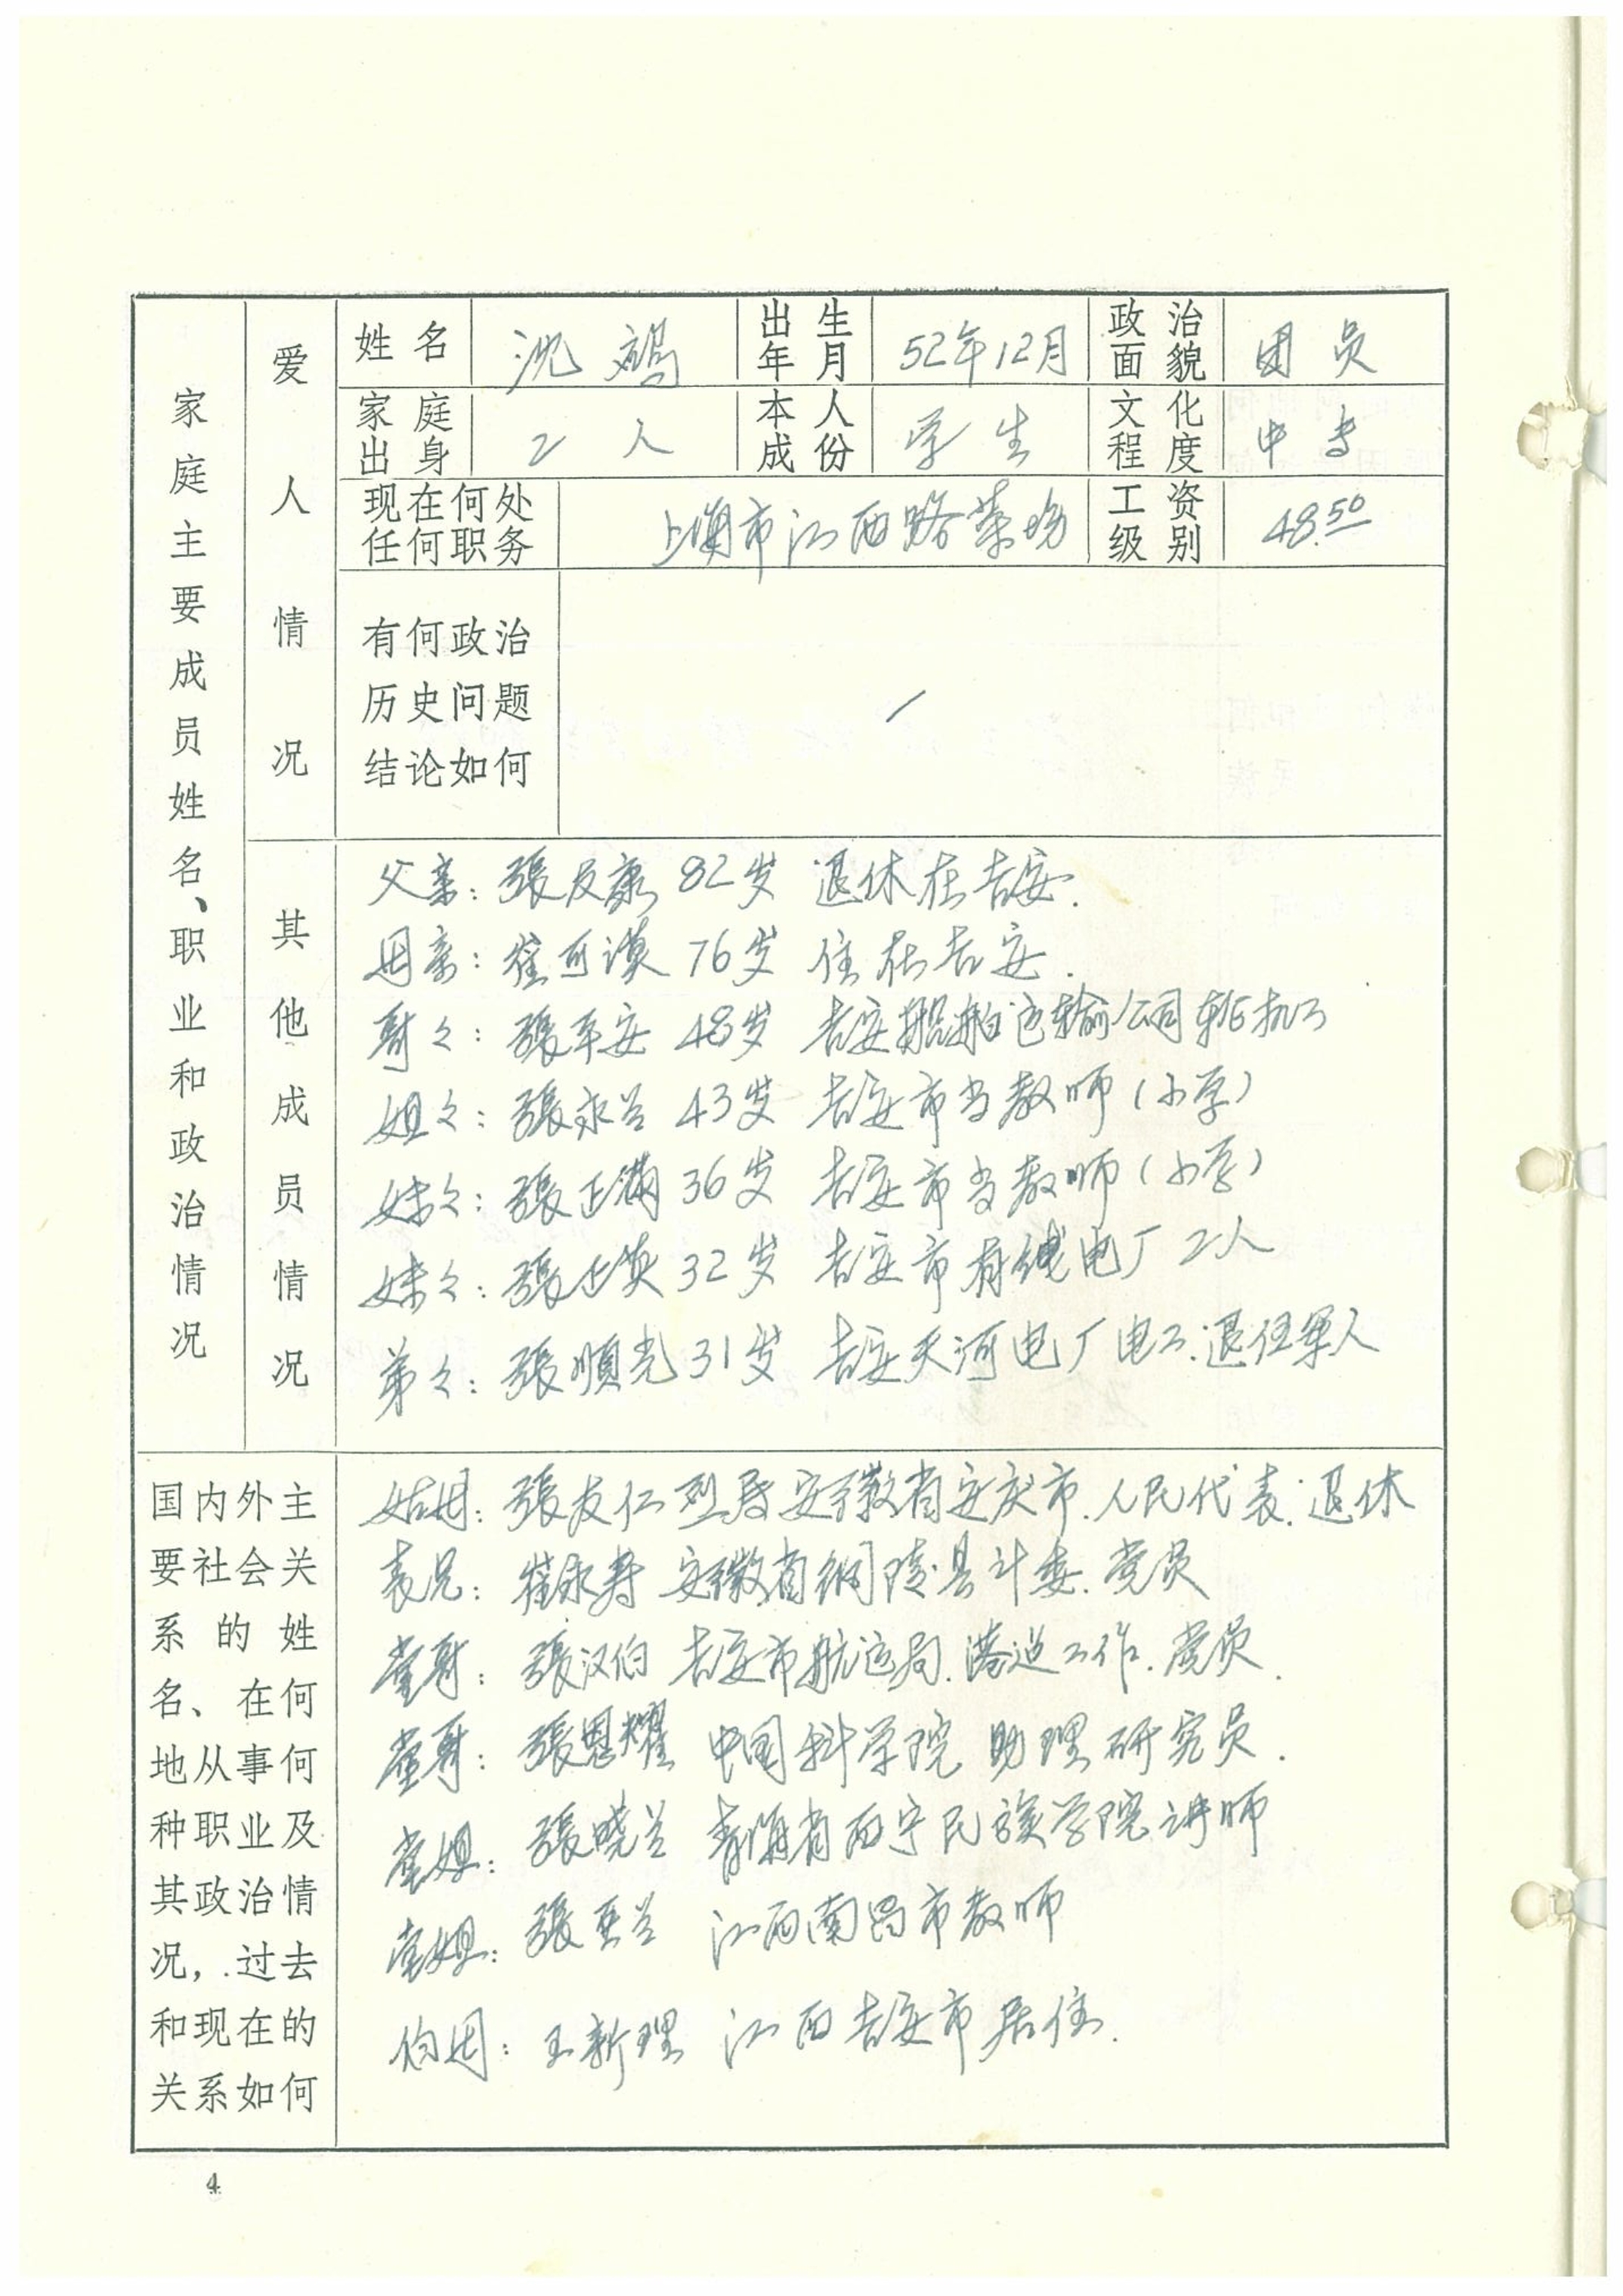 家庭主要成员姓名、职业和政治情况
爱人情况
姓名 沈 出生年月 52年12月 政治面貌 团员
家庭出身 工人 本人成份 学生 文化程度 中专
现在何处任何职务 上海市江西路菜场 工资级别 48.50
有何政治历史问题结论如何 /
其他成员情况
父亲：張友康 82岁 退休在吉安.
母亲：崔可谟 76岁 住在吉安.
哥々：張平安 48岁 吉安船舶运输公司轮机工
姐々：張永兰 43岁 吉安市当教师（小学）
妹々：張正满 36岁 吉安市当教师（小学）
妹々：張正英 32岁 吉安市有线电厂工人
弟々：張順光 31岁 吉安天河电厂电工.退伍军人
国内外主要社会关系的姓名、在何地从事何种职业及其政治情况，过去和现在的关系如何
姑母：張友仁 烈属 安徽省安庆市.人民代表.退休
表兄：崔永寿 安徽省铜陵县计委.党员
堂哥：張汉伯 吉安市航运局.港巡工作.党员.
堂哥：張恩耀 中国科学院 助理研究员.
堂姐：張晓兰 青海省西宁民族学院讲师
堂姐：張 兰 江西南昌市教师
伯母：王新理 江西吉安市居住.
4